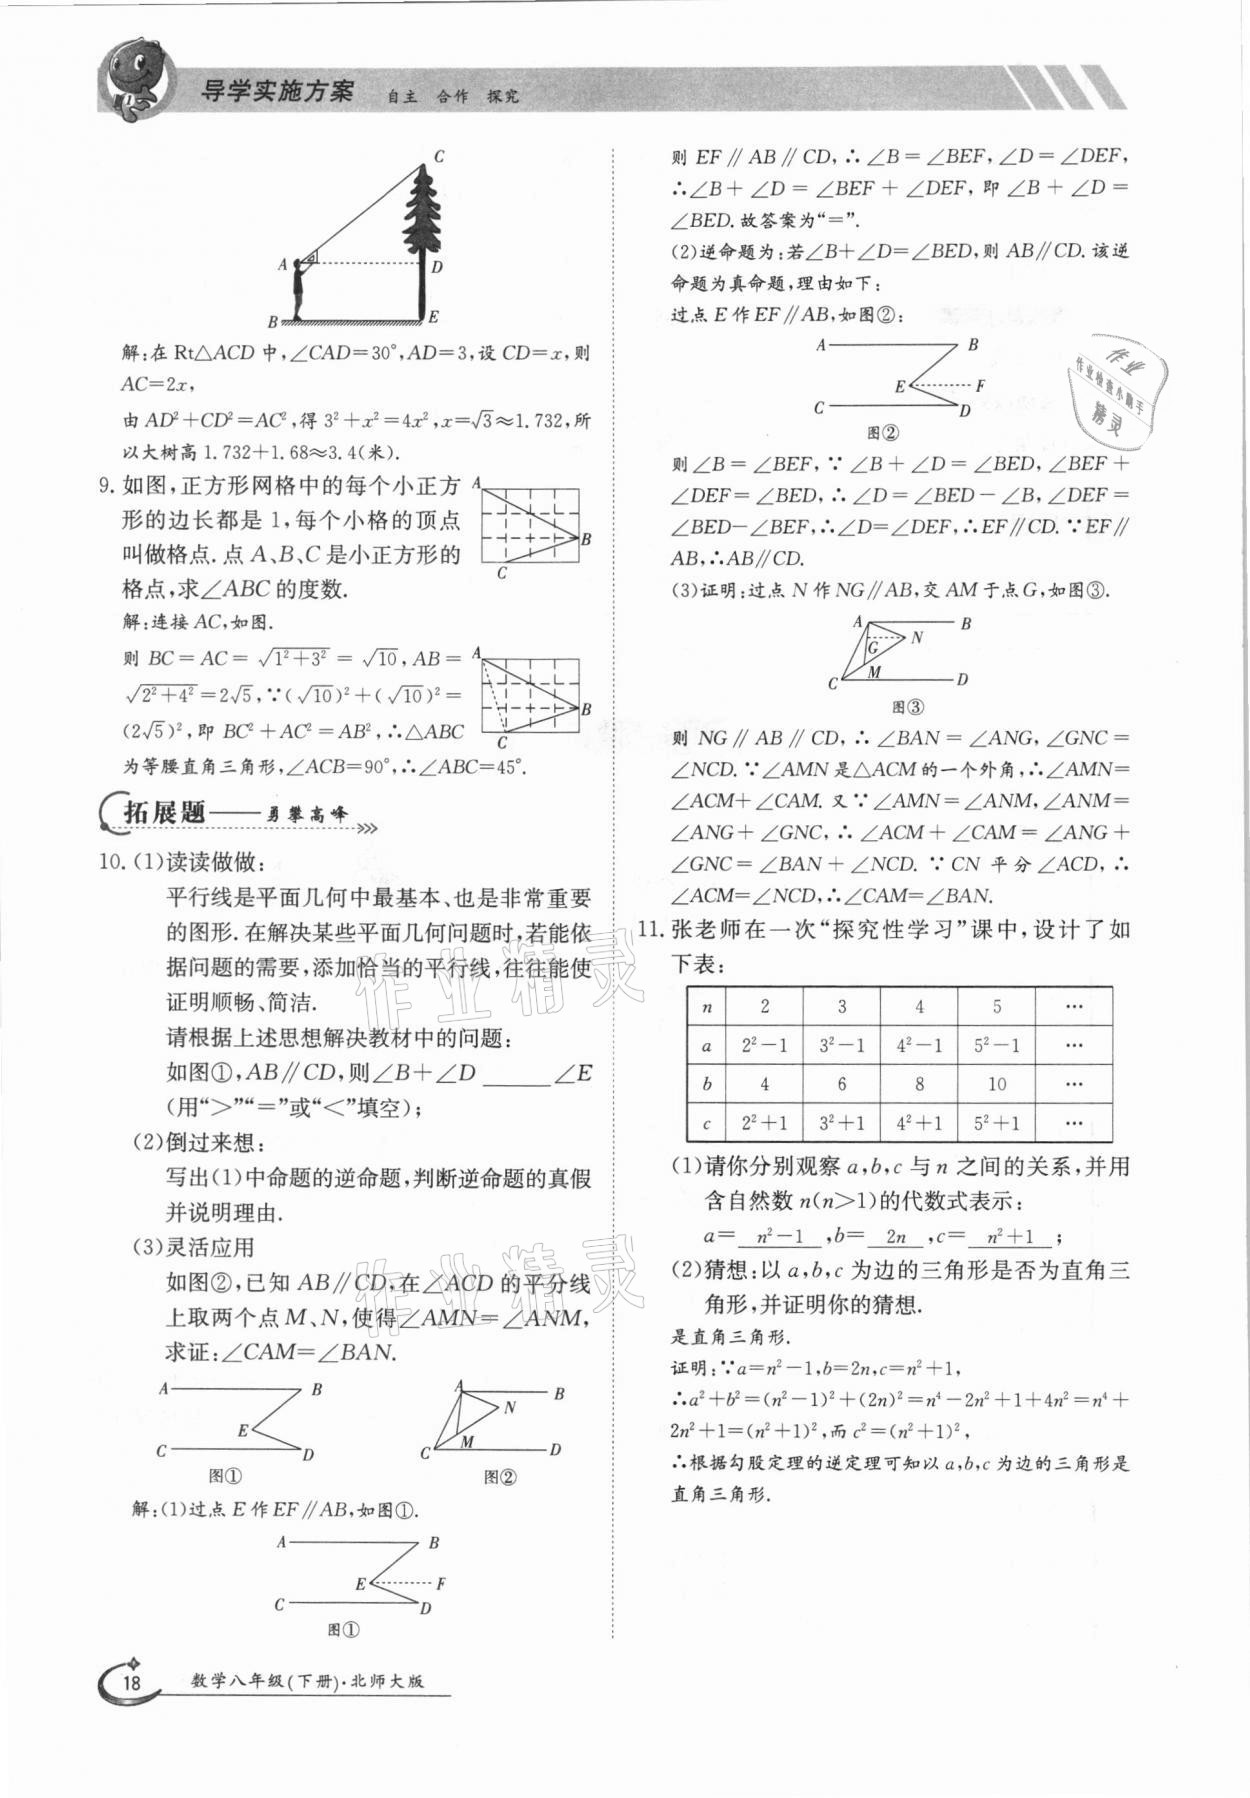 导学实施方案 自主 合作 探究
C
A
D
B
E
解:在 Rt△ACD 中,∠CAD=30°,AD=3,设 CD=x,则
AC=2x,
由 AD²+CD²=AC²,得 3²+x²=4x²,x=√3≈1.732,所
以大树高 1.732+1.68≈3.4(米).
9. 如图,正方形网格中的每个小正方
形的边长都是 1,每个小格的顶点
叫做格点.点 A、B、C 是小正方形的
格点,求∠ABC 的度数.
A
B
C
解:连接 AC,如图.
则 BC=AC=√(1²+3²)=√10,AB=
√(2²+4²)=2√5,∵(√10)²+(√10)²=
(2√5)²,即 BC²+AC²=AB²,∴△ABC
为等腰直角三角形,∠ACB=90°,∴∠ABC=45°.
A
B
C
拓展题——勇攀高峰
10. (1)读读做做:
平行线是平面几何中最基本、也是非常重要
的图形.在解决某些平面几何问题时,若能依
据问题的需要,添加恰当的平行线,往往能使
证明顺畅、简洁.
请根据上述思想解决教材中的问题:
如图①,AB∥CD,则∠B+∠D ______ ∠E
(用“>”“=”或“<”填空);
(2)倒过来想:
写出(1)中命题的逆命题,判断逆命题的真假
并说明理由.
(3)灵活应用
如图②,已知 AB∥CD,在∠ACD 的平分线
上取两个点 M、N,使得∠AMN=∠ANM,
求证:∠CAM=∠BAN.
A B
E
C D
图①
A B
N
M
C D
图②
解:(1)过点 E 作 EF∥AB,如图①.
A B
E F
C D
图①
18 数学八年级(下册)·北师大版
则 EF∥AB∥CD,∴∠B=∠BEF,∠D=∠DEF,
∴∠B+∠D=∠BEF+∠DEF,即∠B+∠D=
∠BED.故答案为“=”.
(2)逆命题为:若∠B+∠D=∠BED,则 AB∥CD.该逆
命题为真命题,理由如下:
过点 E 作 EF∥AB,如图②:
A B
E F
C D
图②
作业
作业检查小助手
精灵
则∠B=∠BEF,∵∠B+∠D=∠BED,∠BEF+
∠DEF=∠BED,∴∠D=∠BED-∠B,∠DEF=
∠BED-∠BEF,∴∠D=∠DEF,∴EF∥CD.∵EF∥
AB,∴AB∥CD.
(3)证明:过点 N 作 NG∥AB,交 AM 于点 G,如图③.
A B
N
G
M
C D
图③
则 NG∥AB∥CD,∴∠BAN=∠ANG,∠GNC=
∠NCD.∵∠AMN 是△ACM 的一个外角,∴∠AMN=
∠ACM+∠CAM.又∵∠AMN=∠ANM,∠ANM=
∠ANG+∠GNC,∴∠ACM+∠CAM=∠ANG+
∠GNC=∠BAN+∠NCD.∵CN 平分∠ACD,∴
∠ACM=∠NCD,∴∠CAM=∠BAN.
11. 张老师在一次“探究性学习”课中,设计了如
下表:
n 2 3 4 5 …
a 2²-1 3²-1 4²-1 5²-1 …
b 4 6 8 10 …
c 2²+1 3²+1 4²+1 5²+1 …
(1)请你分别观察 a,b,c 与 n 之间的关系,并用
含自然数 n(n>1)的代数式表示:
a= n²-1 ,b= 2n ,c= n²+1 ;
(2)猜想:以 a,b,c 为边的三角形是否为直角三
角形,并证明你的猜想.
是直角三角形.
证明:∵a=n²-1,b=2n,c=n²+1,
∴a²+b²=(n²-1)²+(2n)²=n⁴-2n²+1+4n²=n⁴+
2n²+1=(n²+1)²,而 c²=(n²+1)²,
∴根据勾股定理的逆定理可知以 a,b,c 为边的三角形是
直角三角形.
作业精灵
作业精灵